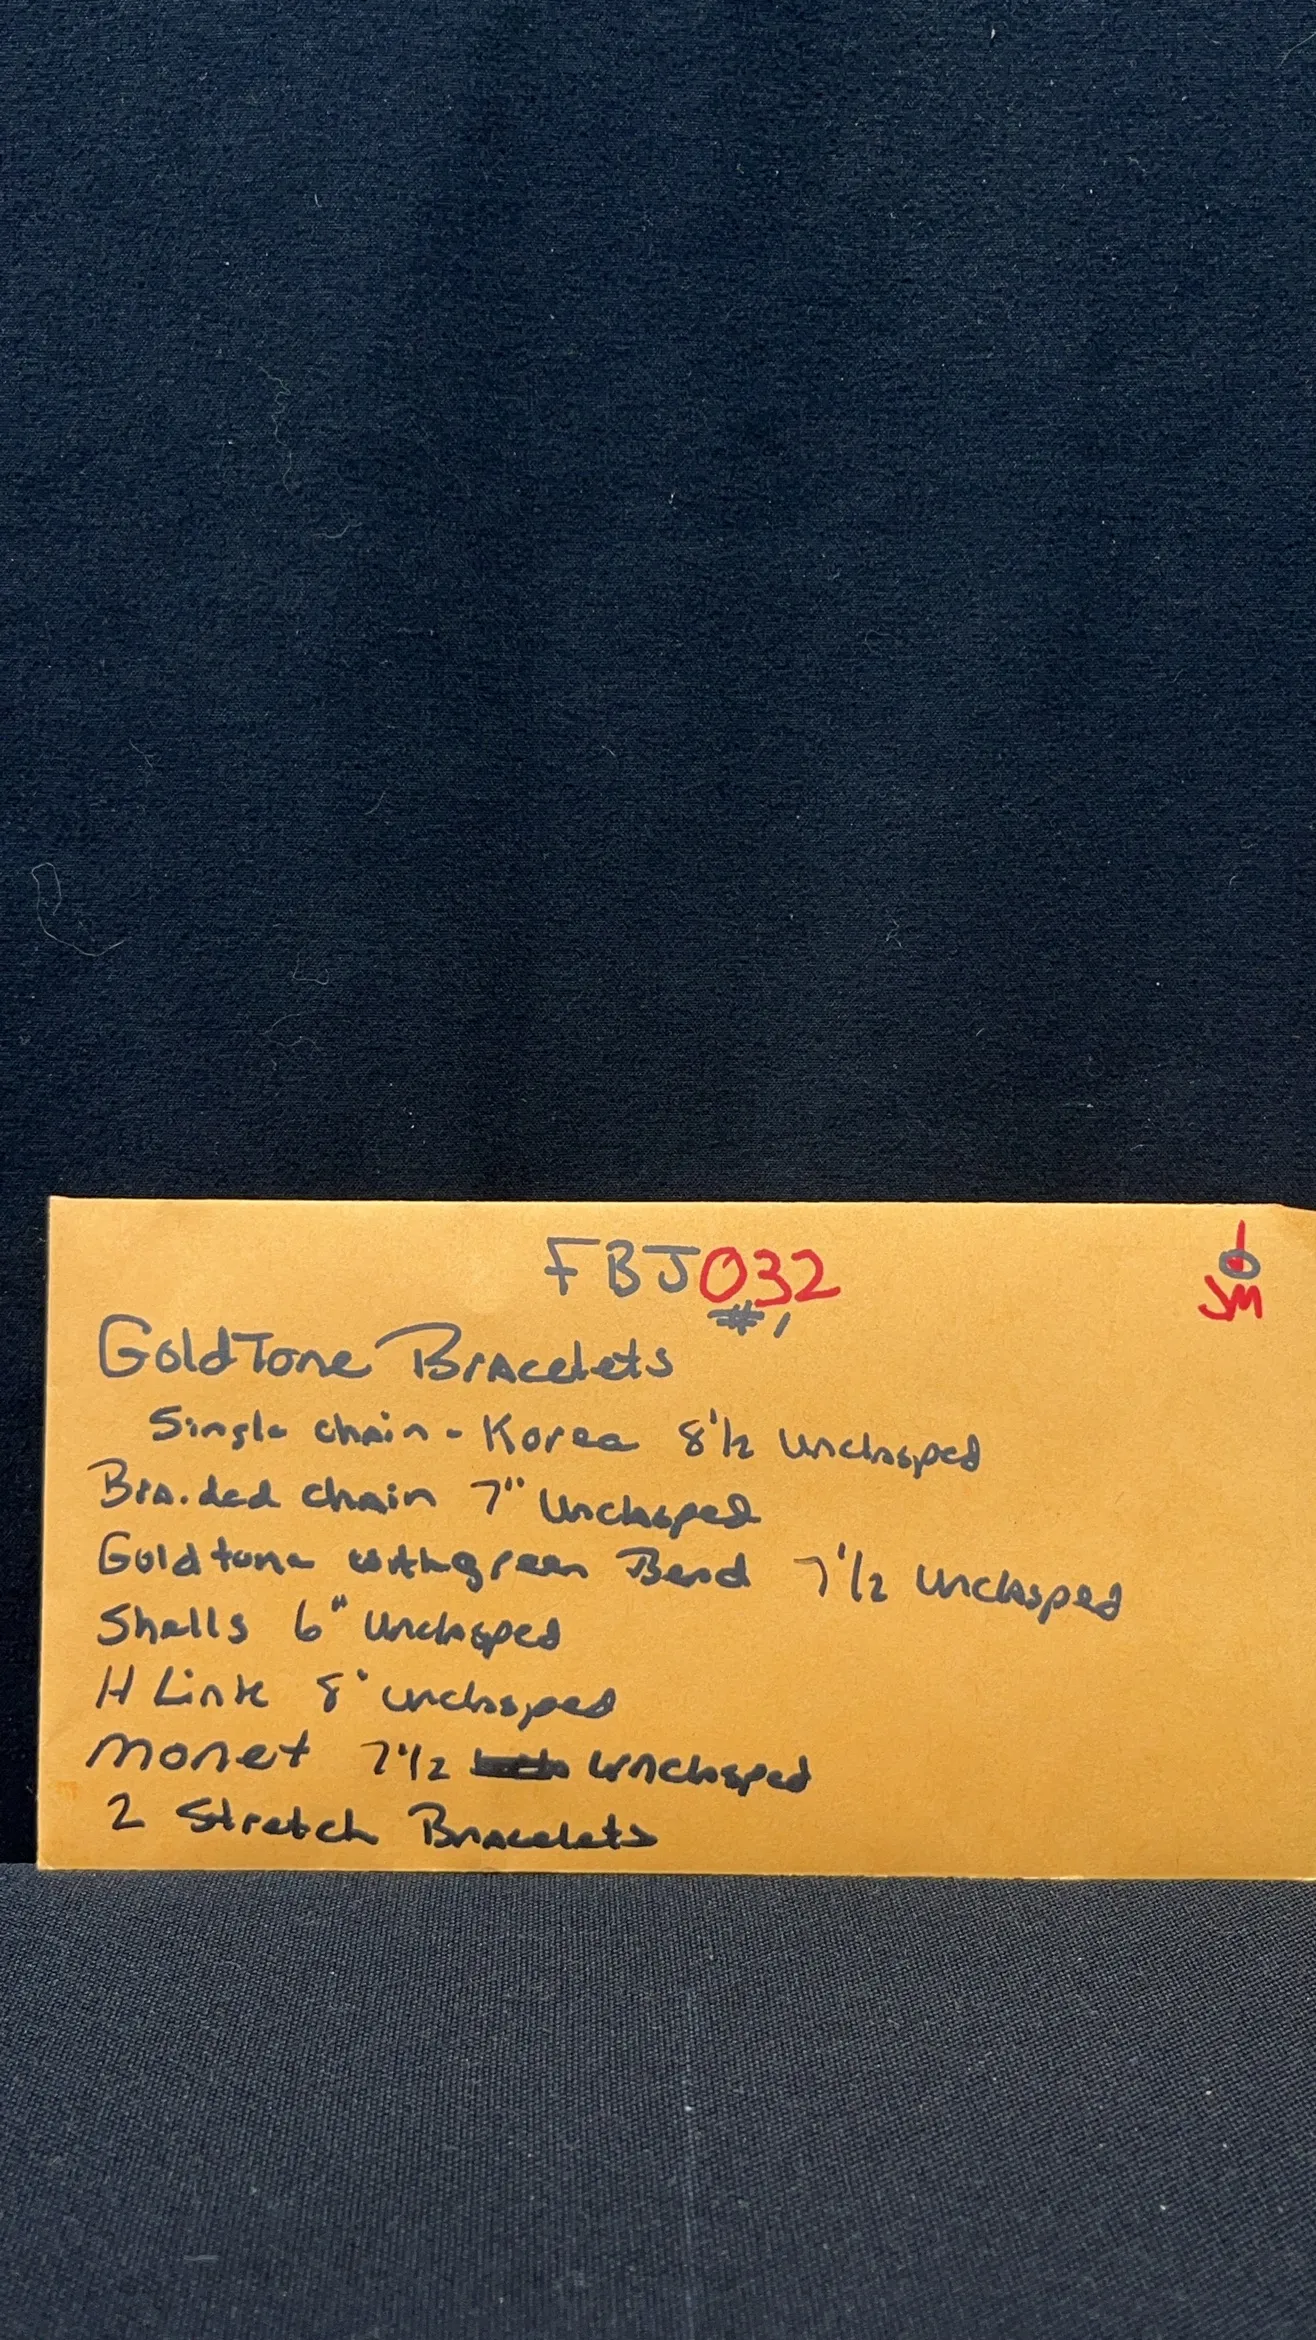 FBJ032
#1
JM
GoldTone Bracelets
Single chain - Korea 8 1/2 unclasped
Braided chain 7" unclasped
Goldtone with green Bead 7 1/2 unclasped
Shells 6" unclasped
H Link 8" unclasped
Monet 7 1/2 unclasped
2 Stretch Bracelets